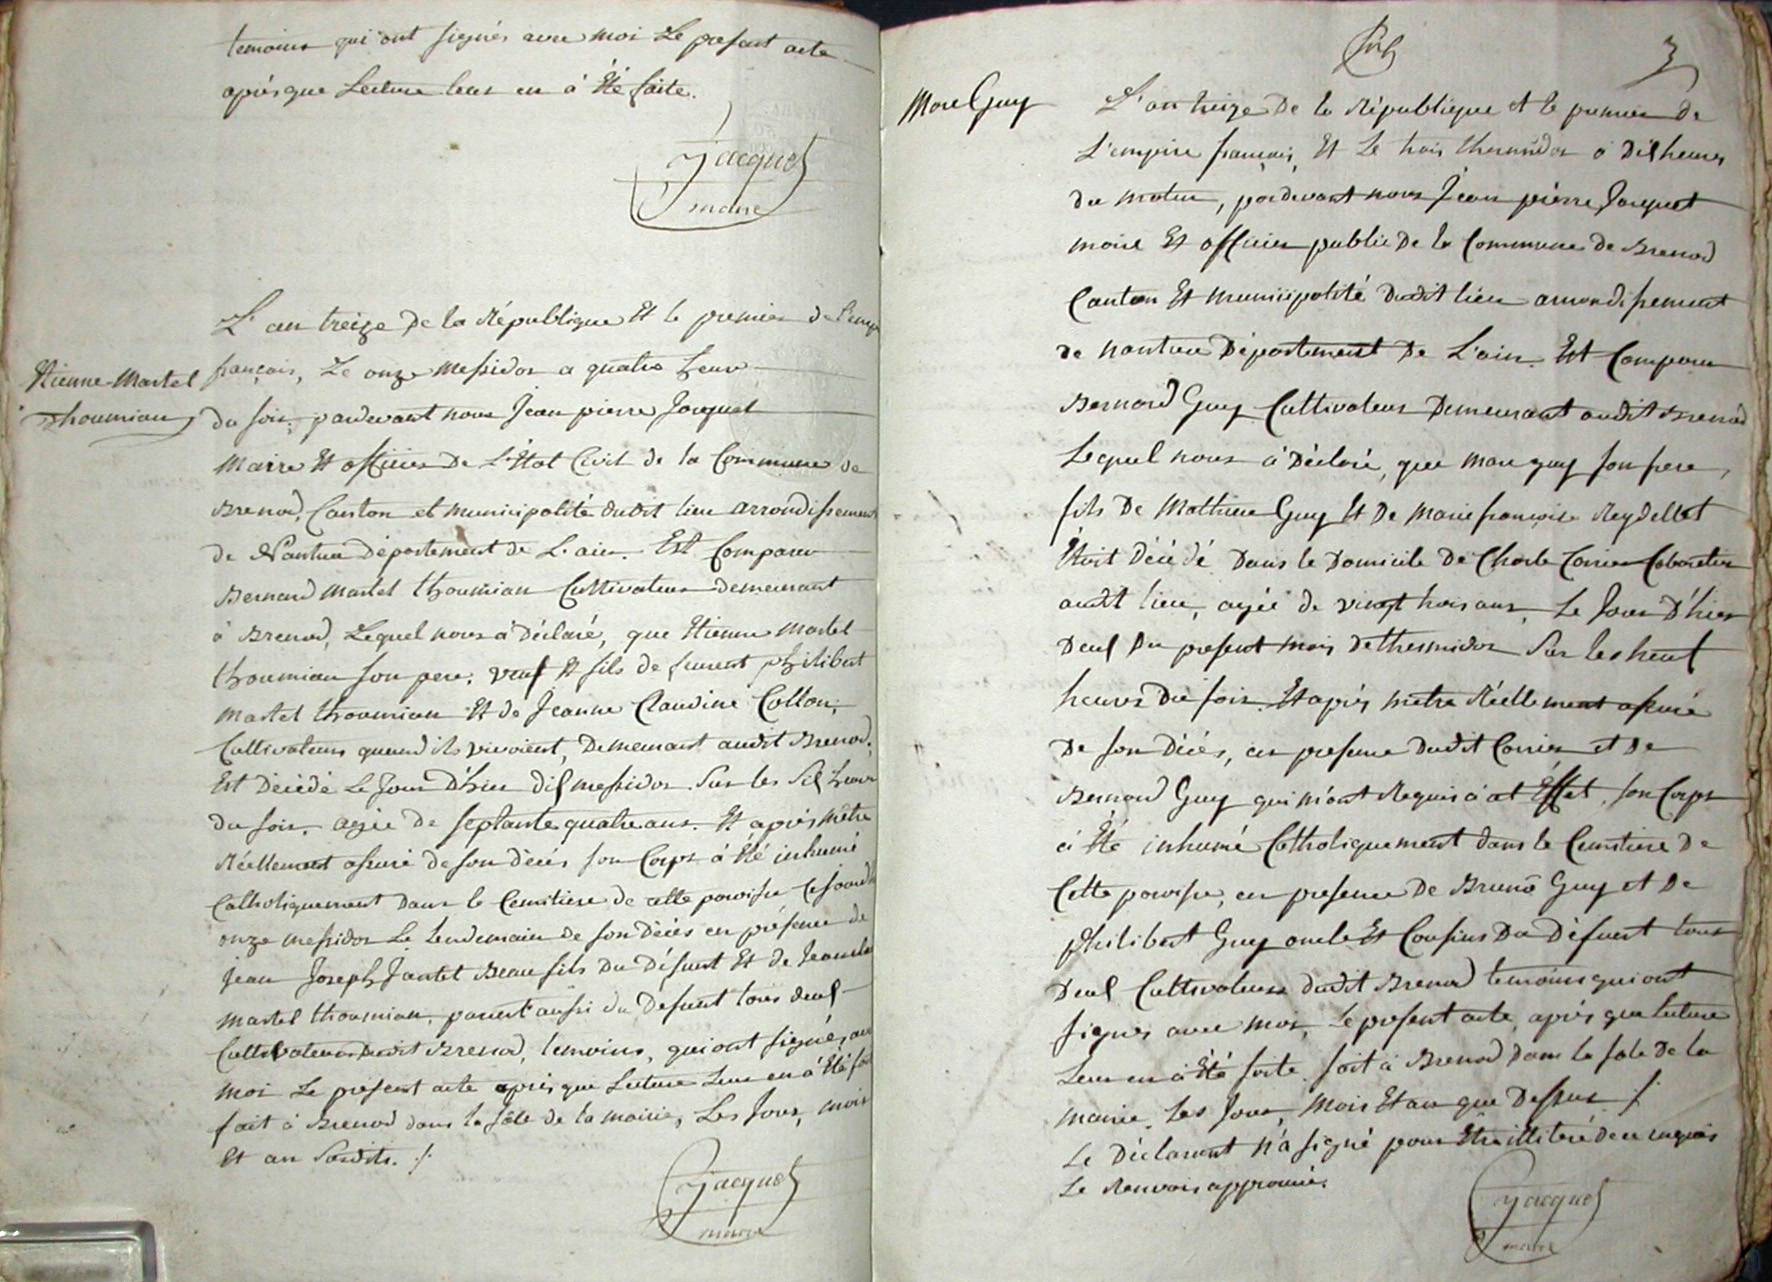 temoins qui ont signés avec moi Le present acte
après que Lecture leur en à Été faite.
Jacquet
maire
Etienne Martel
thoumian
L'an treize de la République Et le premier de L'empire
français, Le onze messidor a quatre heure
du soir, pardevant nous Jean pierre Jacquet
Maire Et officier De L'État Civil de la Commune de
Brenod, Canton et municipalité dudit lieu arrondissement
de Nantua Département de L'ain. Est Comparu
Bernard Martel thoumian Cultivateur demeurant
à Brenod, Lequel nous à Déclaré, que Etienne Martel
thoumian son pere, veuf Et fils de funent philibert
Martel thoumian Et de Jeanne Claudine Collon,
Cultivateurs quand ils vivoient, Demeurant audit Brenod,
Est Décédé Le Jour D'hier dix messidor Sur les six heures
du soir, agée de septante quatre ans. Et après m'être
Réellement assuré de son décès son Corps à Été inhumé
Catholiquement dans le Cemitiere de cette paroisse Ce jourd'hui
onze messidor Le Lendemain de son Décès en présence de
Jean Joseph Jantet Beau fils Du Défunt Et de
Martel thoumian, parent aussi du Defunt tous deux
Cultivateurs dudit Brenod, temoins, qui ont signés avec
moi Le present acte après que Lecture Leur en à Été faite
fait à Brenod dans la sale de la mairie, Les Jour, mois
Et an Susdits. ./.
Jacquet
maire
3
Marc Guy
L'an treize De la République Et le premier de
L'empire français, Et Le trois thermidor à Dix heures
du matin, pardevant nous Jean pierre Jacquet
maire Et officier public De la Commune de Brenod
Canton Et municipalité Dudit lieu arrondissement
de nantua Département De L'ain. Est Comparu
Bernard Guy Cultivateur Demeurant audit Brenod
Lequel nous à Déclaré, que Marc guy son frere,
fils De Mathieu Guy Et De Marie françoise Reydellet
Étoit Décédé Dans le Domicile De Charle Carrier Cabaretier
audit lieu, agée de vingt trois ans, Le Jour D'hier
Deux Du present mois De thermidor Sur les heuf
heures Du soir. Et après m'etre Réellement assuré
De son Décés, en presence dudit Carrier et De
Bernard Guy qui m'ont Requis à cet Éffet, son Corps
à Été inhumé Catholiquement dans le Cemitiere De
Cette paroisse, en presence De Bruno Guy et De
philibert Guy oncle Et Cousins Du Défunt tous
Deux Cultivateurs dudit Brenod temoins qui ont
signés avec moi, Le present acte, après que lecture
Leur en à Été faite. fait à Brenod dans la sale De la
mairie, Les Jour, Mois Et an que Dessus ./.
Le Déclarant n'a signé pour Etre illiteré de ce enquis
Le Renvois approuvé.
Jacquet
maire